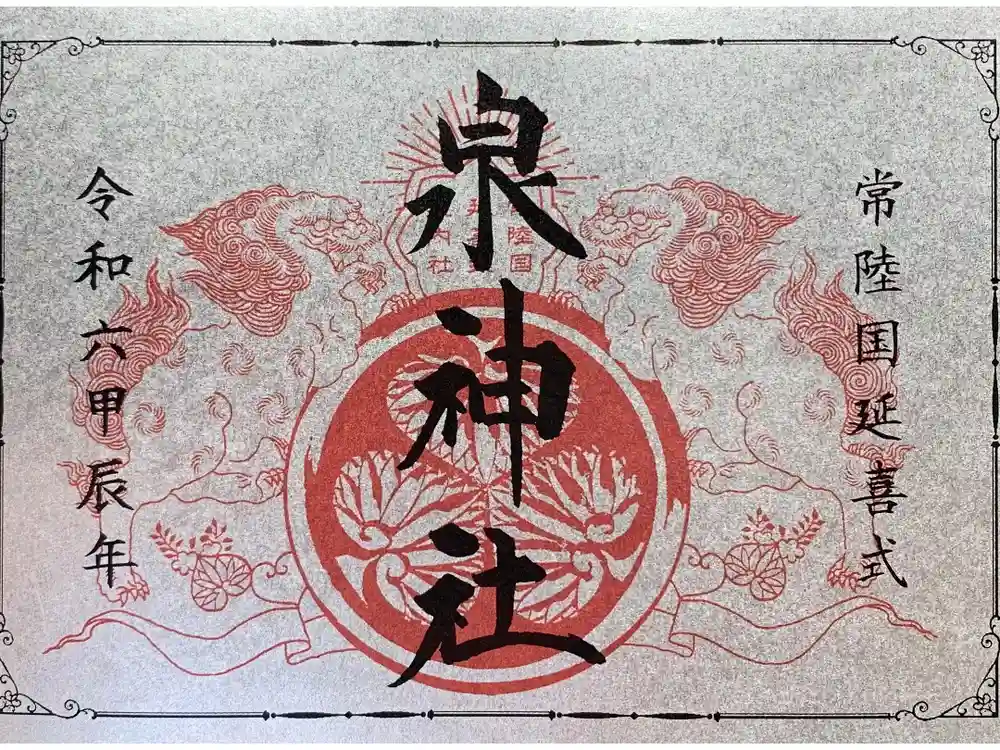 常陸国延喜式
泉神社
令和六甲辰年